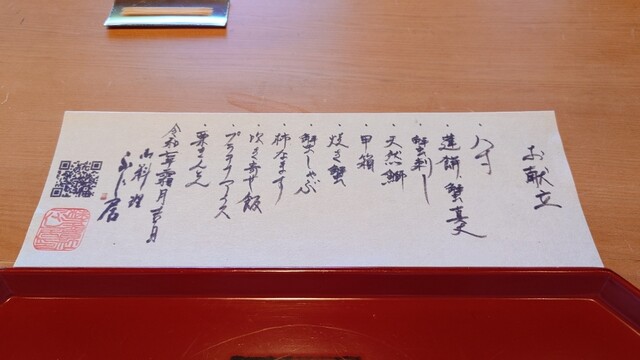 お献立
・八寸
・蓮餅 蟹真丈
・蟹刺し
・天然鰤
・甲箱
・焼き蟹
・蟹しゃぶ
・柿なます
・吹き寄せ飯
・プラチナアイス
・栗きんとん
令和 年霜月吉日
御料理
居